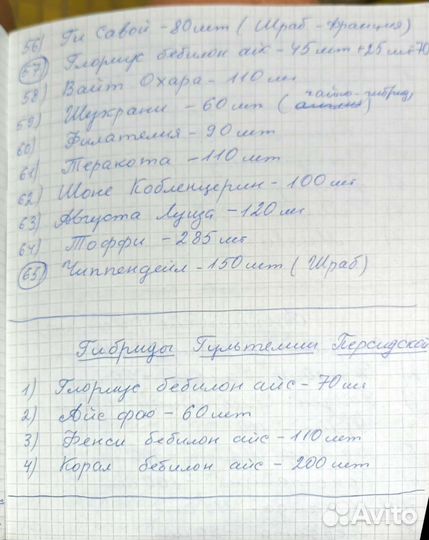 56) Ги Савой - 80 шт ( Шраб - Франция)
57) Глориус бебилон айс - 45 шт + 25 шт = 70
58) Вайт Охара - 110 шт
чайно-гибрид,
59) Шукрани - 60 шт ( )
60) Филателия - 90 шт
61) Теракота - 110 шт
62) Шоне Кобленцерин - 100 шт
63) Августа Луиза - 120 шт
64) Тоффи - 285 шт
65) Чиппендейл - 150 шт ( Шраб)
Гибриды Гультемии Персидской
1) Глориус бебилон айс - 70 шт
2) Айс фою - 60 шт
3) Фенси бебилон айс - 110 шт
4) Корал бебилон айс - 200 шт
Avito